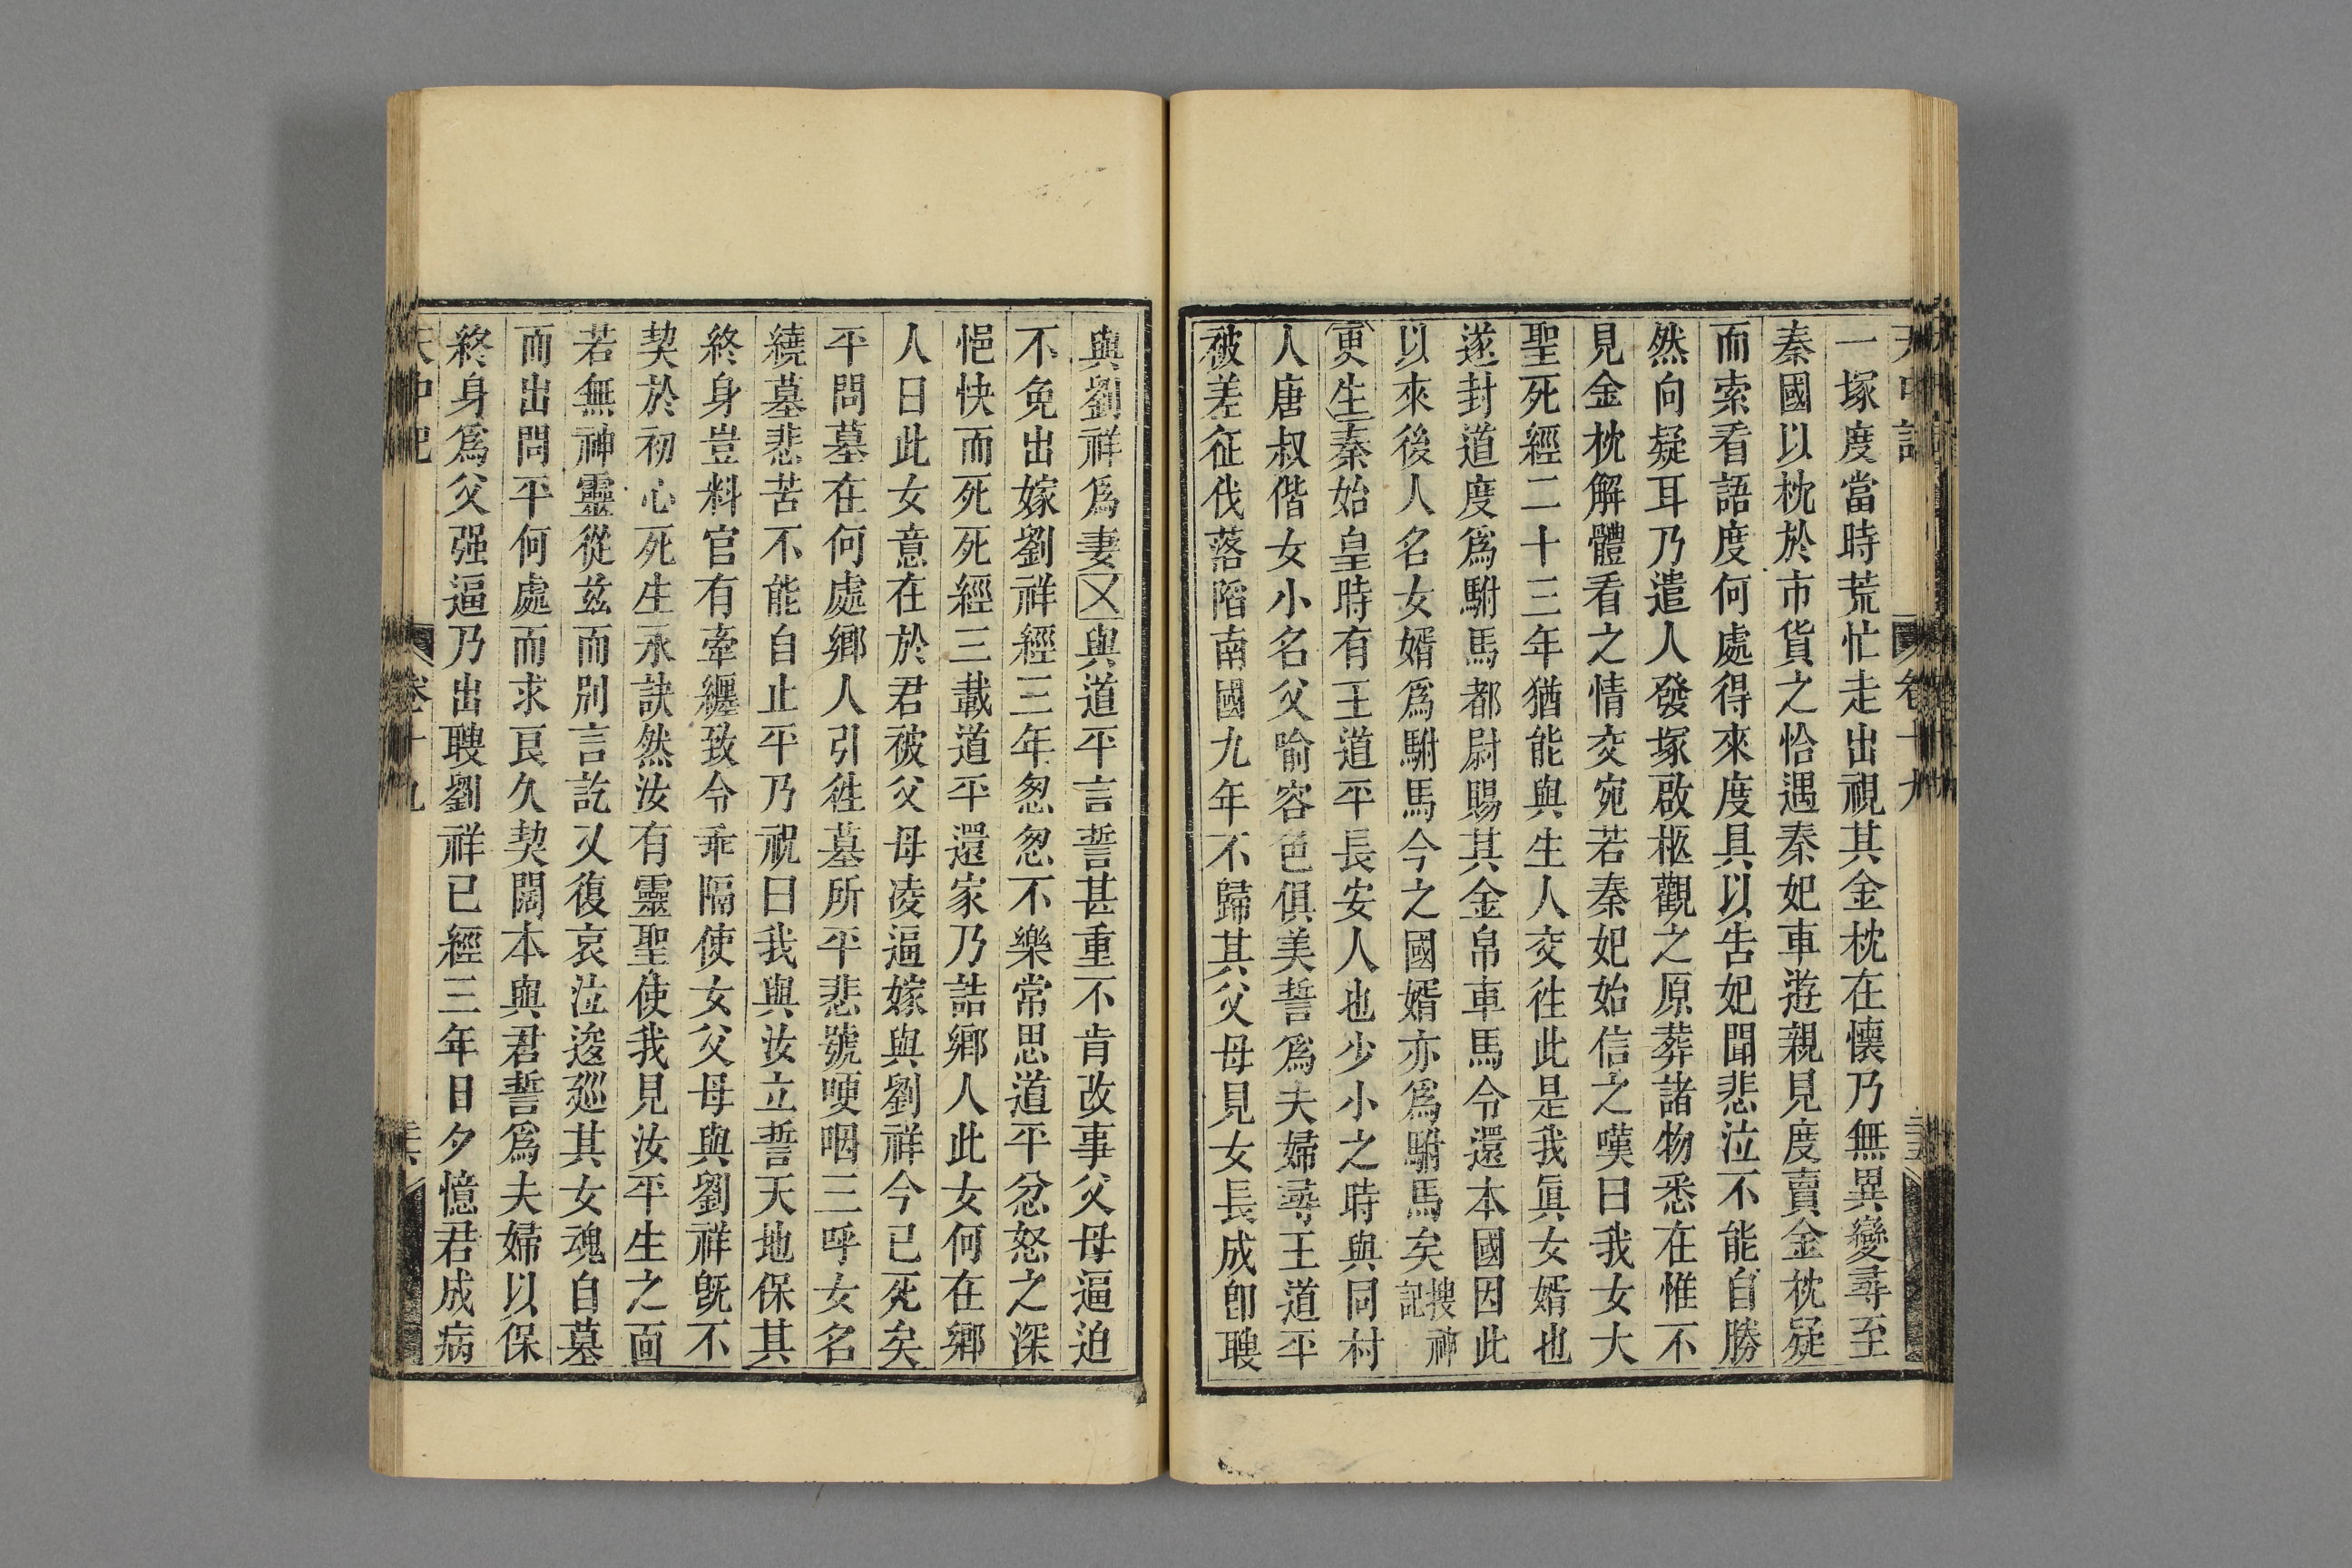 天中記 卷十九 三五
一塚度當時荒忙走出視其金枕在懷乃無異變尋至
秦國以枕於市貨之恰遇秦妃車遊親見度賣金枕疑
而索看語度何處得來度具以告妃聞悲泣不能自勝
然向疑耳乃遣人發塚啟柩觀之原葬諸物悉在惟不
見金枕解體看之情交宛若秦妃始信之嘆曰我女大
聖死經二十三年猶能與生人交徃此是我眞女婿也
遂封道度爲駙馬都尉賜其金帛車馬令還本國因此
以來後人名女婿爲駙馬今之國婿亦爲駙馬矣搜神記
更生秦始皇時有王道平長安人也少小之時與同村
人唐叔偕女小名父喻容色俱美誓爲夫婦尋王道平
被差征伐落陷南國九年不歸其父母見女長成卽聘
與劉祥爲妻又與道平言誓甚重不肯改事父母逼迫
不免出嫁劉祥經三年忽忽不樂常思道平忿怒之深
悒怏而死死經三載道平還家乃詰鄉人此女何在鄉
人曰此女意在於君被父母凌逼嫁與劉祥今已死矣
平問墓在何處鄉人引徃墓所平悲號哽咽三呼女名
繞墓悲苦不能自止平乃祝曰我與汝立誓天地保其
終身豈料官有牽纏致令乖隔使女父母與劉祥旣不
契於初心死生永訣然汝有靈聖使我見汝平生之面
若無神靈從玆而別言訖又復哀泣逡廵其女魂自墓
而出問平何處而來良久契闊本與君誓爲夫婦以保
終身爲父强逼乃出聘劉祥已經三年日夕憶君成病
天中記 卷十九 三六